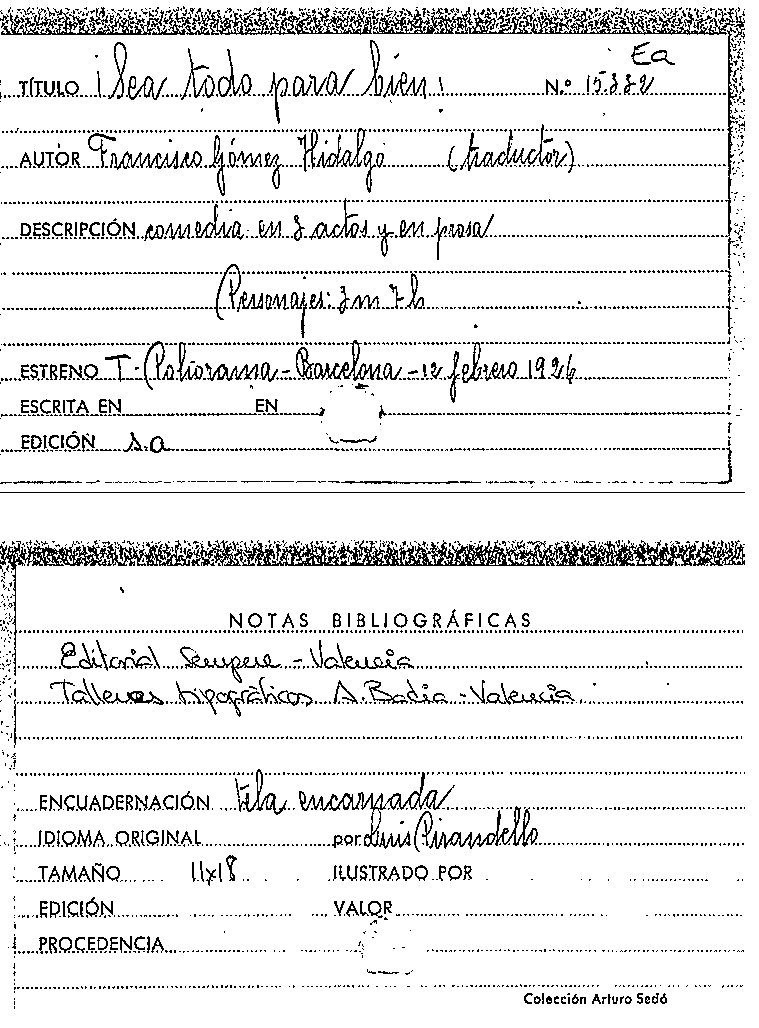 Ea
TÍTULO ¡Sea todo para bien! N.º 15.332
AUTOR Francisco Gómez Hidalgo (traductor)
DESCRIPCIÓN comedia en 3 actos y en prosa
Personajes: 3m 7h
ESTRENO T- Poliorama - Barcelona - 12 febrero 1926
ESCRITA EN EN
EDICIÓN s.a
NOTAS BIBLIOGRÁFICAS
Editorial Sempere - Valencia
Talleres tipográficos A. Badia - Valencia
ENCUADERNACIÓN tela encarnada
IDIOMA ORIGINAL por Luis Pirandello
TAMAÑO 11x18 ILUSTRADO POR
EDICIÓN VALOR
PROCEDENCIA
Colección Arturo Sedó